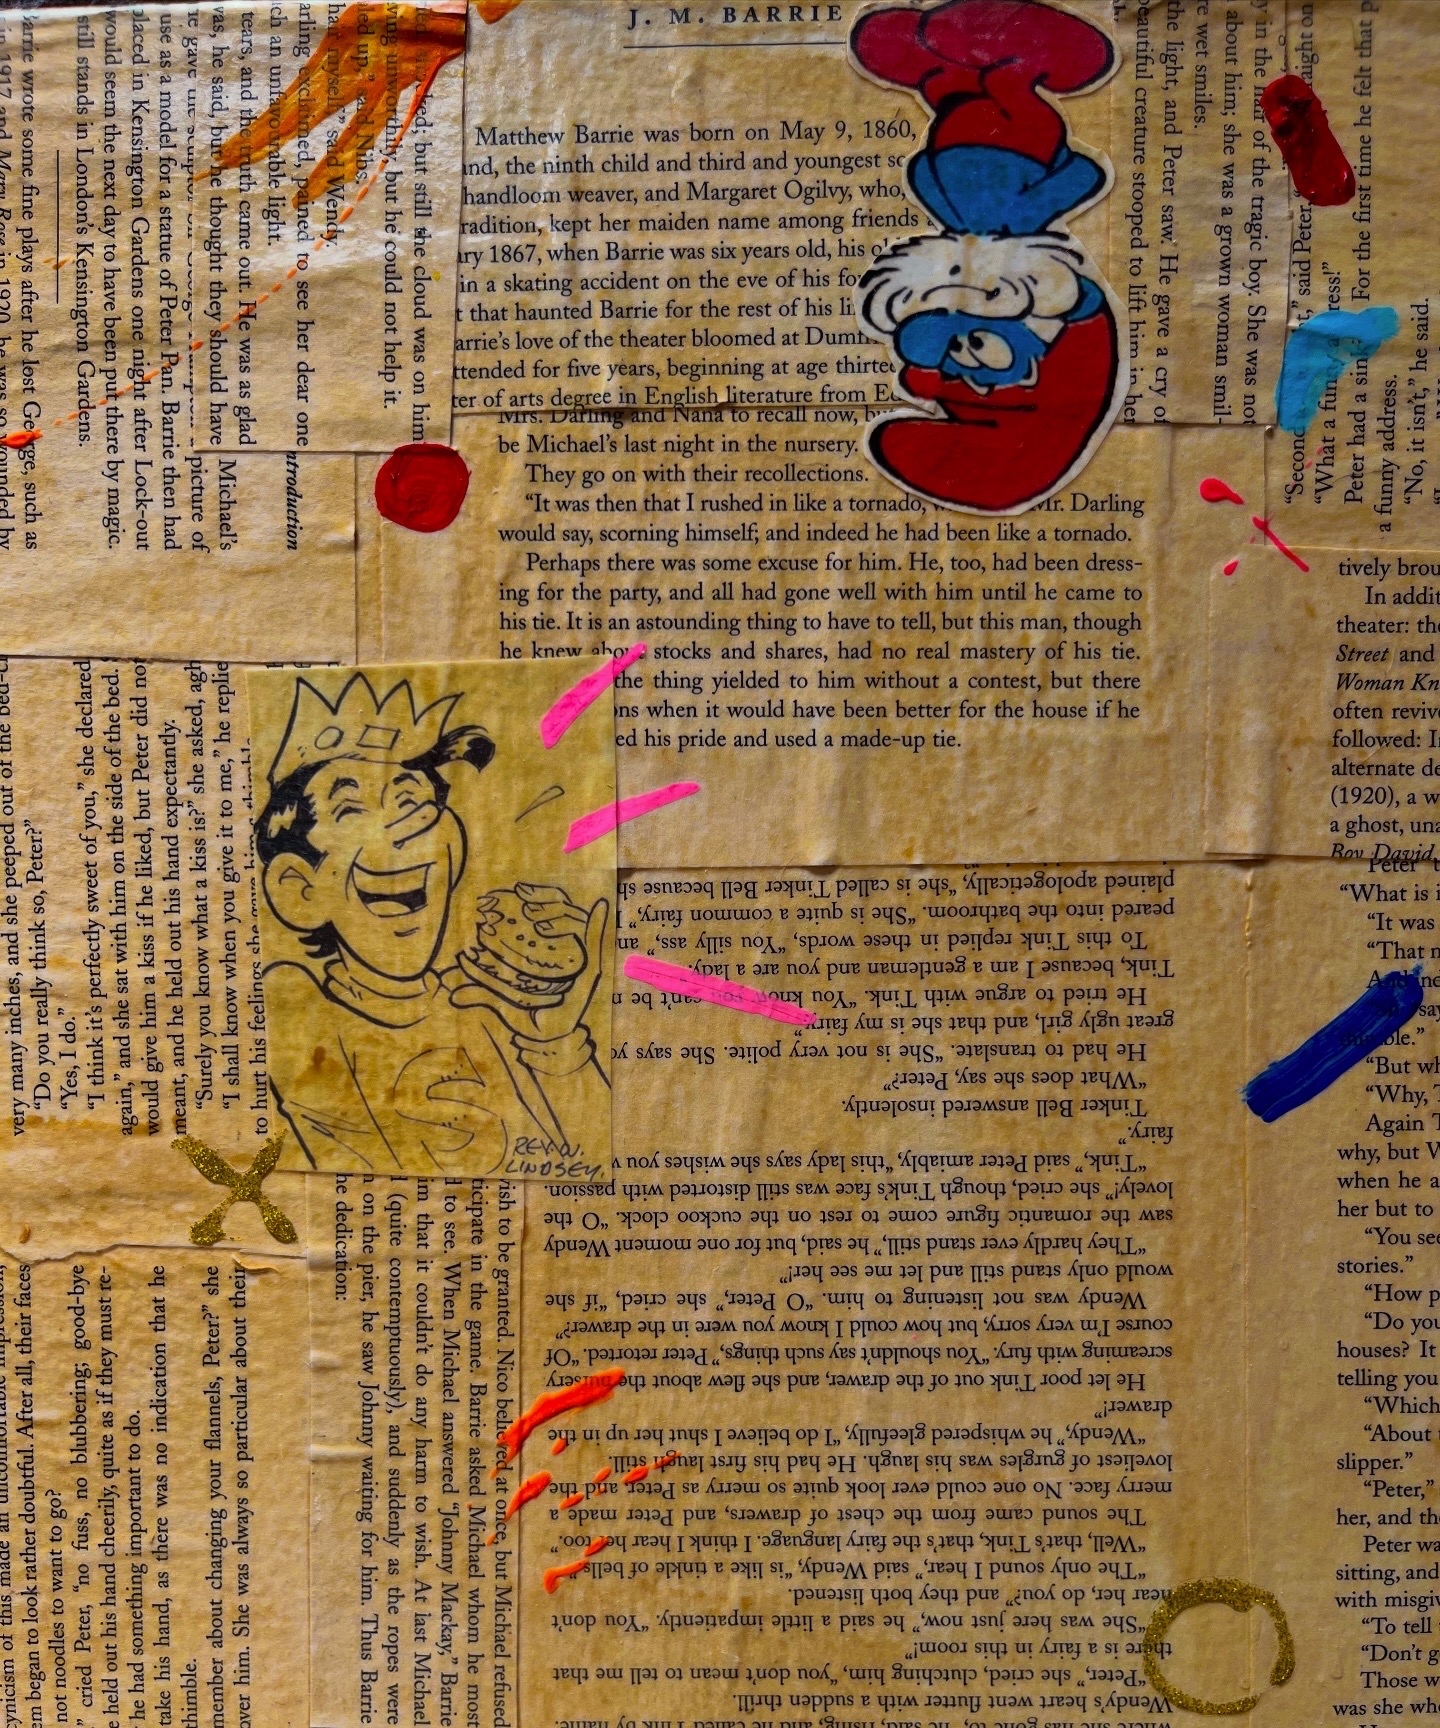 J. M. BARRIE
Matthew Barrie was born on May 9, 1860,
the ninth child and third and youngest
handloom weaver, and Margaret Ogilvy, who,
kept her maiden name among friends
1867, when Barrie was six years old, his
in a skating accident on the eve of his
that haunted Barrie for the rest of his
love of the theater bloomed at
for five years, beginning at age
of arts degree in English literature from
Mrs. Darling and Nana to recall now,
be Michael's last night in the nursery.
They go on with their recollections.
“It was then that I rushed in like a tornado, Mr. Darling
would say, scorning himself; and indeed he had been like a tornado.
Perhaps there was some excuse for him. He, too, had been dress-
ing for the party, and all had gone well with him until he came to
his tie. It is an astounding thing to have to tell, but this man, though
he knew about stocks and shares, had no real mastery of his tie.
the thing yielded to him without a contest, but there
when it would have been better for the house if he
his pride and used a made-up tie.
but still the cloud was on him
unworthily, but he could not help it.
up,” said Nibs.
myself,” said Wendy,
exclaimed, pained to see her dear one
an unfavorable light.
tears, and the truth came out. He was as glad
he said, but he thought they should have
Introduction
Michael's
gave picture of
use as a model for a statue of Peter Pan. Barrie then had
placed in Kensington Gardens one night after Lock-out
would seem the next day to have been put there by magic.
still stands in London's Kensington Gardens.
Barrie wrote some fine plays after he lost George, such as
in 1917 and Mary Rose in 1920, he was so wounded by
beautiful creature stooped to lift him in her
the light, and Peter saw. He gave a cry of
wet smiles.
about him; she was a grown woman smil-
in the hair of the tragic boy. She was not
said Peter,
For the first time he felt that
“Second
“What a funny address!”
Peter had a
a funny address.
“No, it isn't,” he said.
In
theater:
Street and
Woman
often
followed:
alternate
(1920), a
a ghost,
Boy David
Peter
“What is
“It was
“That
“But
“Why,
Again
why, but
when he
her but to
“You
stories.”
“How
“Do you
houses? It
telling you
“Which
“About
slipper.”
“Peter,”
her, and
Peter
sitting, and
with
“To tell
“Don't
Those
was she
very many inches, and she peeped out of the
“Do you really think so, Peter?”
“Yes, I do.”
“I think it's perfectly sweet of you,” she declared,
again,” and she sat with him on the side of the bed.
would give him a kiss if he liked, but Peter did not
meant, and he held out his hand expectantly.
“Surely you know what a kiss is?” she asked,
“I shall know when you give it to me,” he
to hurt his feelings she gave him a thimble.
REV. W.
LINDSEY.
of this made an uncomfortable impression,
began to look rather doubtful. After all, their faces
not noodles to want to go?
cried Peter, “no fuss, no blubbering; good-bye
held out his hand cheerily, quite as if they must re-
he had something important to do.
take his hand, as there was no indication that he
thimble.
about changing your flannels, Peter?” she
over him. She was always so particular about their
wish to be granted. Nico believed at once, but Michael refused
in the game. Barrie asked Michael whom he most
to see. When Michael answered “Johnny Mackay,” Barrie
that it couldn't do any harm to wish. At last Michael
(quite contemptuously), and suddenly as the ropes were
on the pier, he saw Johnny waiting for him. Thus Barrie
the dedication:
Wendy's heart went flutter with a sudden thrill.
“Peter,” she cried, clutching him, “you don't mean to tell me that
there is a fairy in this room!”
“She was here just now,” he said a little impatiently. “You don't
hear her, do you?” and they both listened.
“The only sound I hear,” said Wendy, “is like a tinkle of bells.”
“Well, that's Tink, that's the fairy language. I think I hear her too.”
The sound came from the chest of drawers, and Peter made a
merry face. No one could ever look quite so merry as Peter, and the
loveliest of gurgles was his laugh. He had his first laugh still.
“Wendy,” he whispered gleefully, “I do believe I shut her up in the
drawer!”
He let poor Tink out of the drawer, and she flew about the nursery
screaming with fury. “You shouldn't say such things,” Peter retorted. “Of
course I'm very sorry, but how could I know you were in the drawer?”
Wendy was not listening to him. “O Peter,” she cried, “if she
would only stand still and let me see her!”
“They hardly ever stand still,” he said, but for one moment Wendy
saw the romantic figure come to rest on the cuckoo clock. “O the
lovely!” she cried, though Tink's face was still distorted with passion.
“Tink,” said Peter amiably, “this lady says she wishes you
fairy.”
Tinker Bell answered insolently.
“What does she say, Peter?”
He had to translate. “She is not very polite. She says
great ugly girl, and that she is my fairy.”
He tried to argue with Tink. “You know you can't be
Tink, because I am a gentleman and you are a lady.”
To this Tink replied in these words, “You silly ass,”
peared into the bathroom. “She is quite a common fairy,”
plained apologetically, “she is called Tinker Bell because